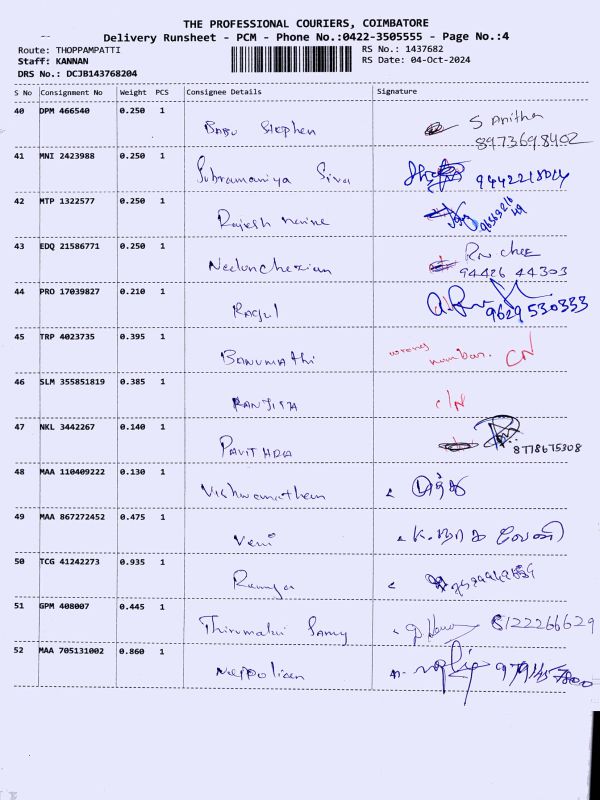 THE PROFESSIONAL COURIERS, COIMBATORE
Delivery Runsheet - PCM - Phone No.:0422-3505555 - Page No.:4
Route: THOPPAMPATTI RS No.: 1437682
Staff: KANNAN RS Date: 04-Oct-2024
DRS No.: DCJB143768204
S No Consignment No Weight PCS Consignee Details Signature
40 DPM 466540 0.250 1
Babu Stephen S Anitha
8973698402
41 MNI 2423988 0.250 1
Subramaniya Siva
42 MTP 1322577 0.250 1
Rajesh
43 EDQ 21586771 0.250 1
Nedunchezian
94426 44303
44 PRO 17039827 0.210 1
Ragul 9629530333
45 TRP 4023735 0.395 1
Banumathi wrong number. CN
46 SLM 355851819 0.385 1
C/N
47 NKL 3442267 0.140 1
Pavithra 8778675308
48 MAA 110409222 0.130 1
Vishwanathan
49 MAA 867272452 0.475 1
Veni
50 TCG 41242273 0.935 1
Ramya
51 GPM 408007 0.445 1
Thirumalai Samy 8122266629
52 MAA 705131002 0.860 1
Neppolian